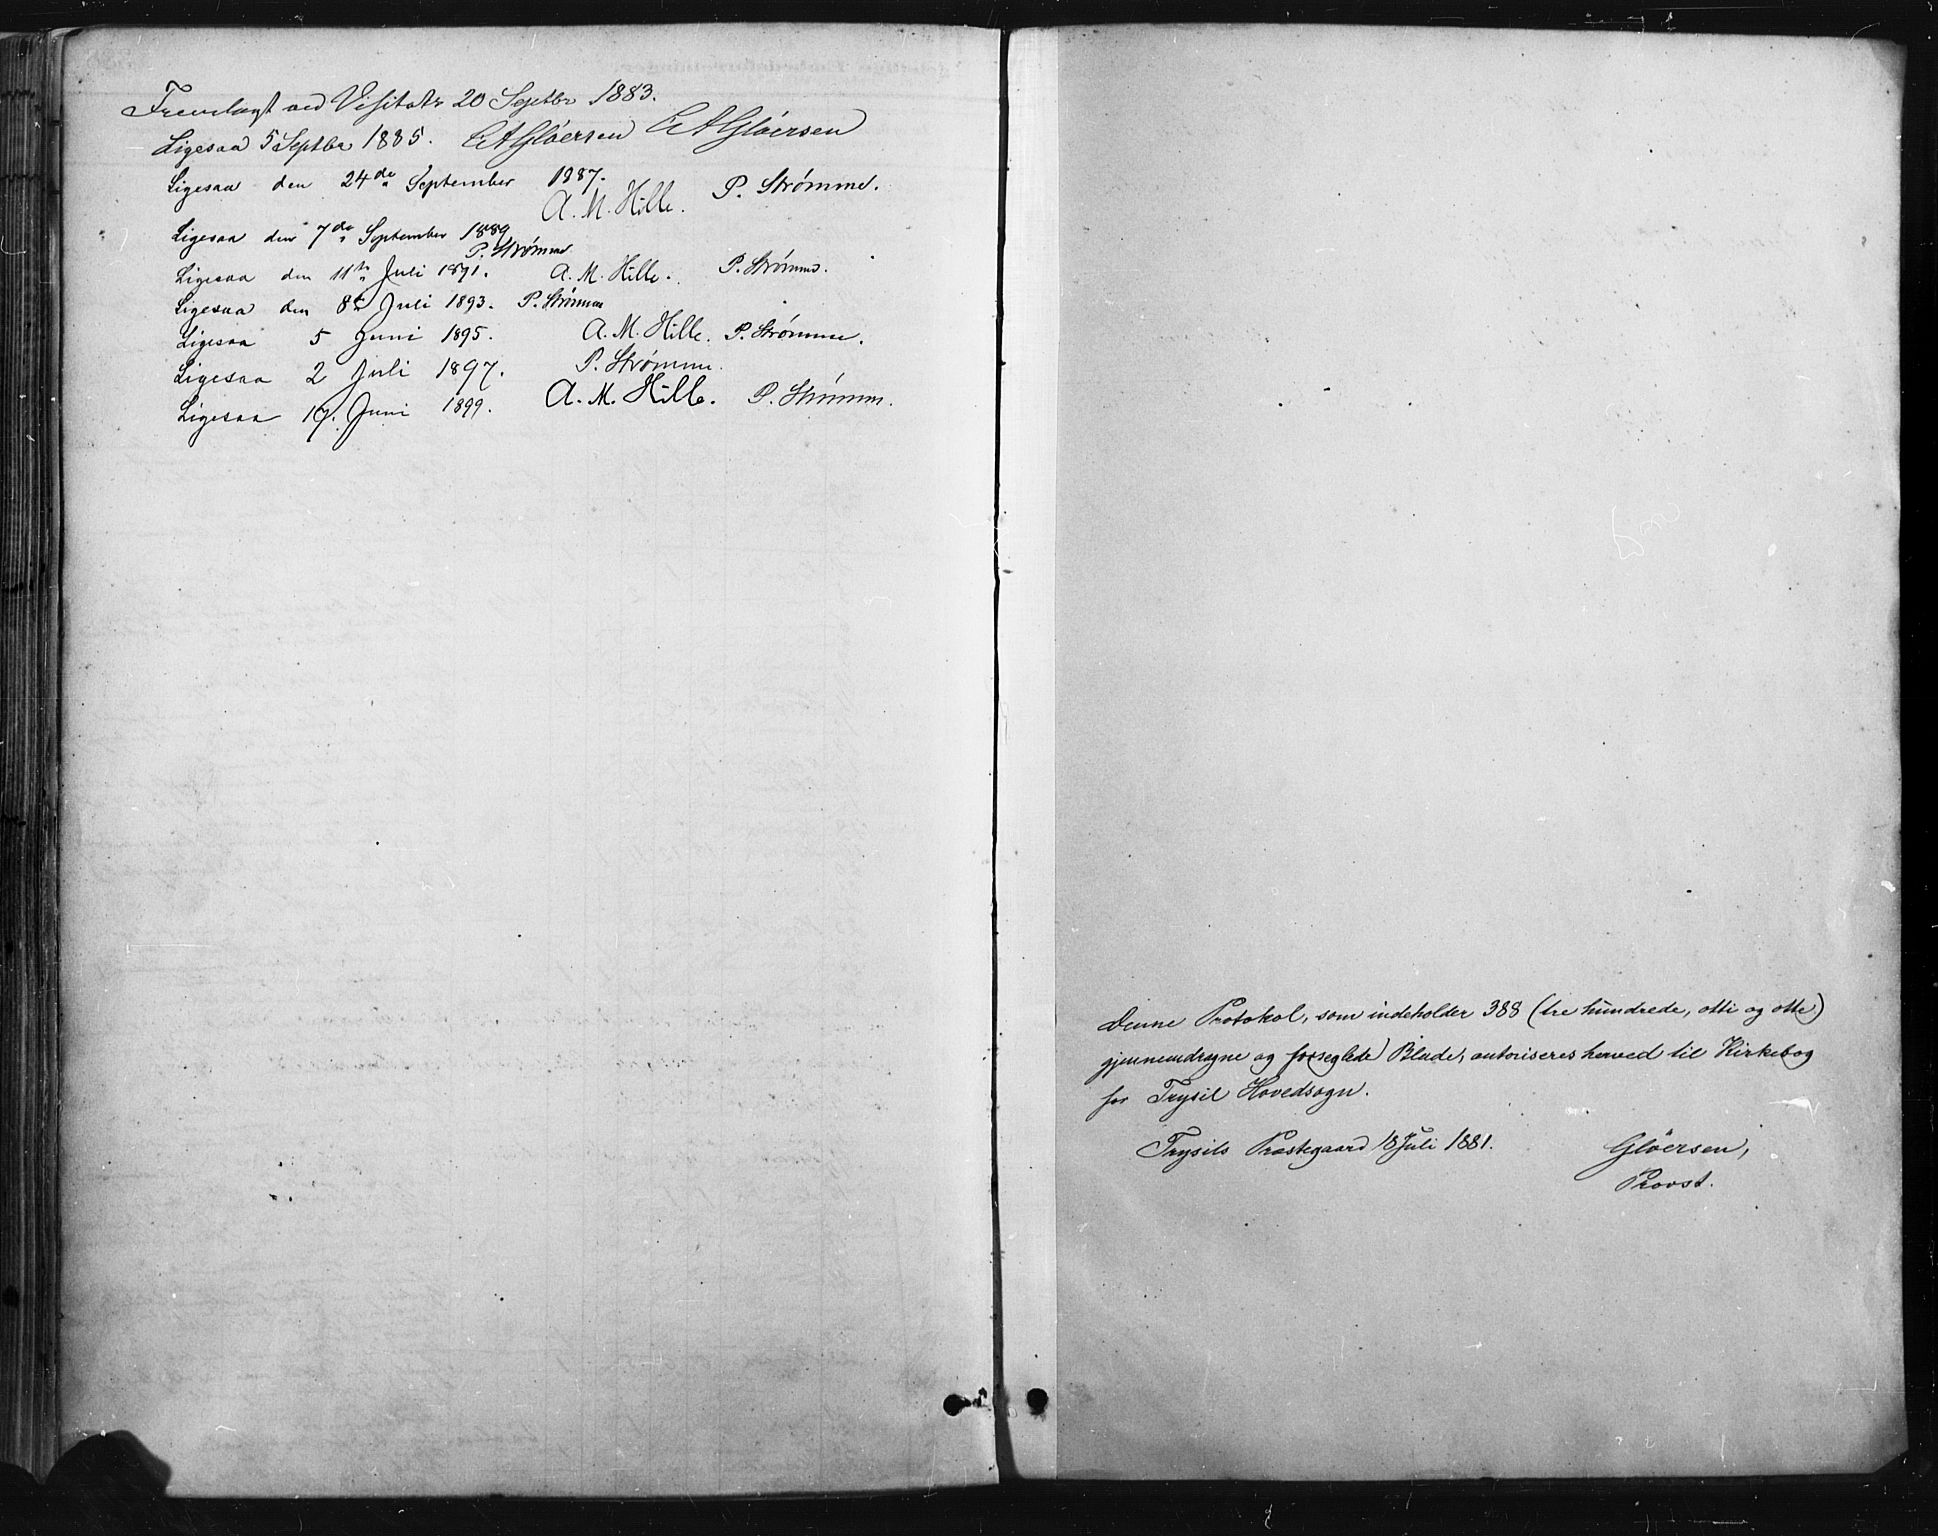 Fremlagt ved Visitats 20 Septbr 1883.
Ligesaa 5 Septbr 1885. CAGløersen CAGløersen
Ligesaa den 24de September 1887.
A. M. Hille. P. Strømme.
Ligesaa den 7de September 1889
P. Strømme
Ligesaa den 11te Juli 1891. A. M. Hille. P. Strømme.
Ligesaa den 8de Juli 1893. P. Strømme
Ligesaa 5 Juni 1895. A. M. Hille. P. Strømme.
Ligesaa 2 Juli 1897. P. Strømme.
Ligesaa 17. Juni 1899. A. M. Hille. P. Strømme.
Denne Protokol, som indeholder 388 (tre hundrede, otti og otte)
gjennemdragne og forseglede Blade, autoriseres herved til Kirkebog
for Trysil Hovedsogn.
Trysils Præstegaard 18 Juli 1881. Gløersen,
Provst.